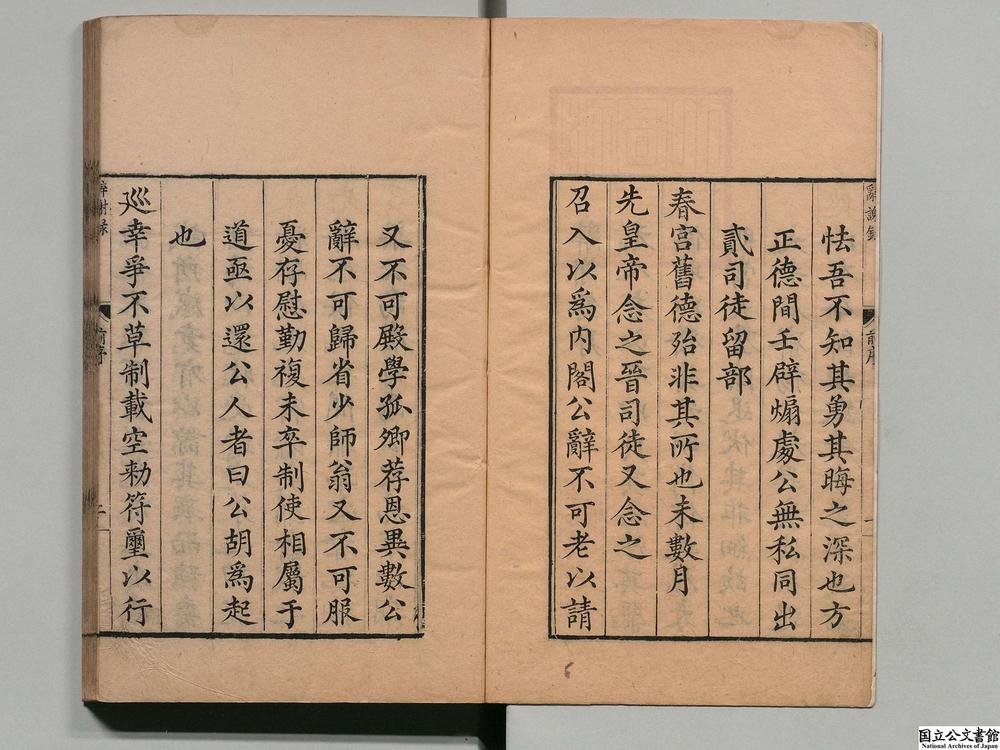 辭謝錄
前序
一
怯吾不知其勇其晦之深也方
正德間壬辟煽處公無私同出
貳司徒留部
春宮舊德殆非其所也未數月
先皇帝念之晉司徒又念之
召入以爲内閣公辭不可老以請
又不可殿學孤卿荐恩異數公
辭不可歸省少師翁又不可服
憂存慰勤複未卒制使相屬于
道亟以還公人者曰公胡爲起
也
巡幸爭不草制載空勑符璽以行
辭謝錄
前序
二
国立公文書館
National Archives of Japan